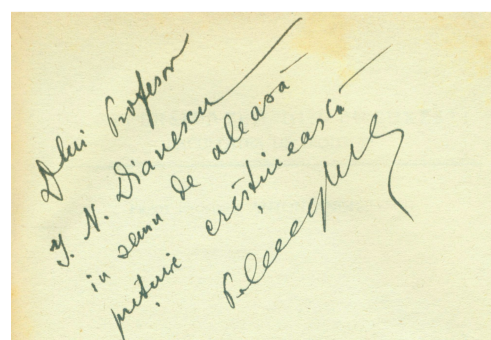 Dlui Profesor
I. N. Dianescu
in semn de aleasă
prețuire creștinească